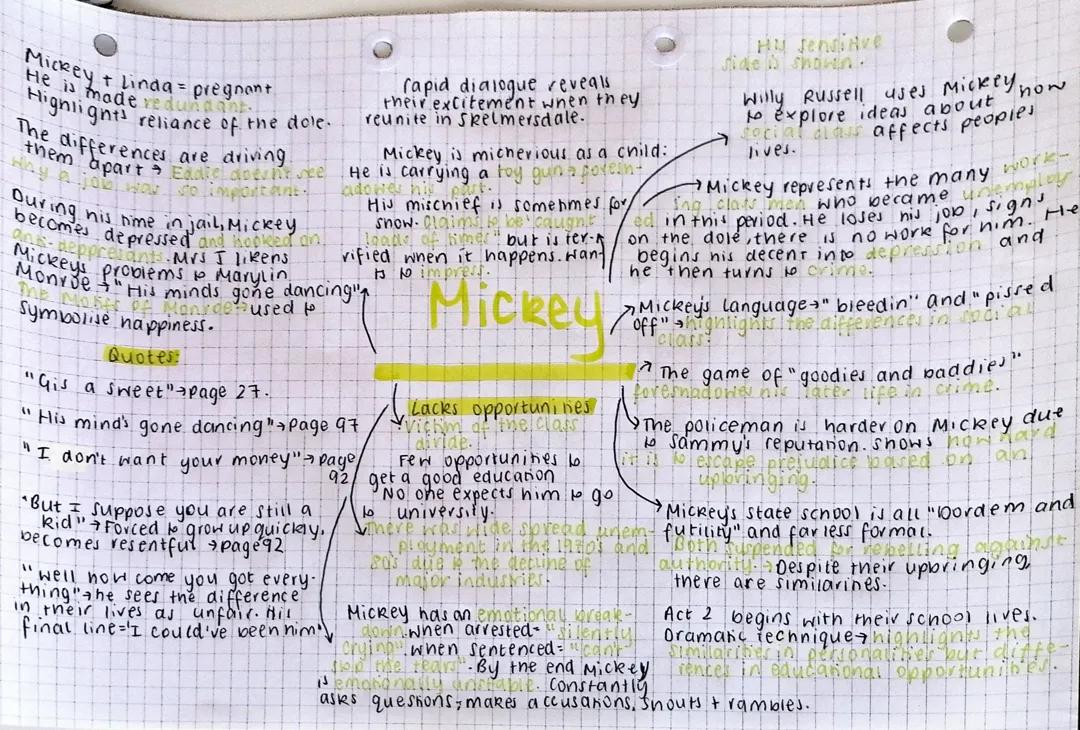 Mickey + Linda = pregnant
He is made redundant.
Highlights reliance of the dole.
The differences are driving
them apart → Eddie doesn't see
why a job was so important.
During his time in jail, Mickey
becomes depressed and hooked on
anti-deppresants. Mrs J likens
Mickeys problems to Marylin
Monroe → "His minds gone dancing"
The Motifs of Monroe → used to
symbolise happiness.
Quotes:
"Gis a sweet" → page 27.
"His mind's gone dancing" → page 97
"I don't want your money" → page
92
"But I suppose you are still a
kid" → Forced to grow up quickly,
becomes resentful → page 92
"Well how come you got every-
thing" → he sees the difference
in their lives as unfair. His
final line = "I could've been him"
rapid dialogue reveals
their excitement when they
reunite in Skelmersdale.
Mickey is michevious as a child:
He is carrying a toy gun → foresh-
adows his part.
His mischief is sometimes for
show. Claims to be "caught
loads of times" but is ter-
rified when it happens. Want
is to impress.
Mickey
Lacks opportunities
Victim of the class
divide.
Few opportunities to
get a good education
No one expects him to go
to university.
There was wide spread unem-
ployment in the 1970's and
80's due to the decline of
major industries.
Mickey has an emotional break-
down when arrested = "silently
crying". when sentenced = "cant
stop the tears". By the end Mickey
is emotionally unstable. Constantly
asks questions, makes accusations, shouts + rambles.
His sensitive
side is shown.
Willy Russell uses Mickey
to explore ideas about how
social class affects peoples
lives.
Mickey represents the many work-
ing class men who became unemploy
ed in this period. He loses his job, signs
on the dole, there is no work for him. He
begins his decent into depression and
he then turns to crime.
Mickey's language → "bleedin" and "pissed
off" → highlights the differences in social
class.
The game of "goodies and baddies"
foreshadows his later life in crime.
The policeman is harder on Mickey due
to Sammy's reputation. Shows how hard
it is to escape prejudice based on an
upbringing.
Mickey's state school is all "bordem and
futility" and far less formal.
Both suspended for rebelling against
authority. → Despite their upbringing
there are similarities.
Act 2 begins with their school lives.
Dramatic technique → highlights the
similarities in personalities but diffe-
rences in educational opportunities.